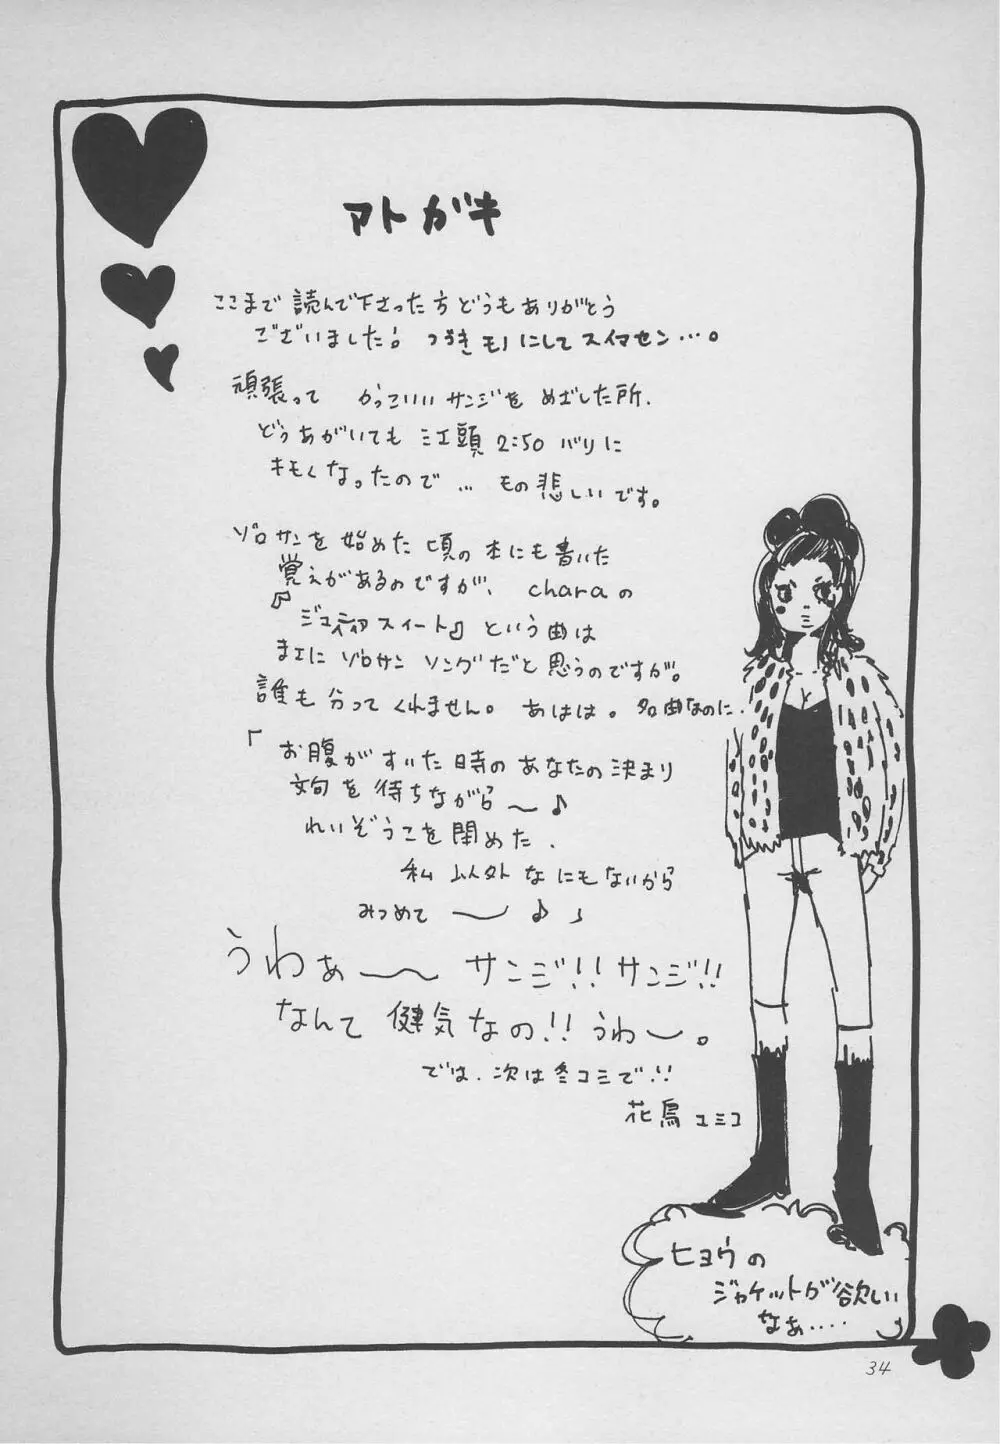 アトガキ
ここまで読んで下さった方どうもありがとう
ございました! つづきモノにしてスイマセン…。
頑張って かっこいいサンジをめざした所、
どうあがいても 江頭2:50バリに
キモくなったので… もの悲しいです。
ゾロサンを始めた頃の本にも書いた
覚えがあるのですが、charaの
『ジュディアスイート』という曲は
まさにゾロサンソングだと思うのですが。
誰も分ってくれません。あはは。名曲なのに、
「お腹がすいた時のあなたの決まり
文句を待ちながら〜♪
れいぞうこを閉めた、
私以外なにもないから
みつめて〜♪」
うわぁ〜〜 サンジ!!サンジ!!
なんて健気なの!! うわ〜。
では、次は冬コミで!!
花鳥ユミコ
ヒョウの
ジャケットが欲しい
なぁ‥‥
34